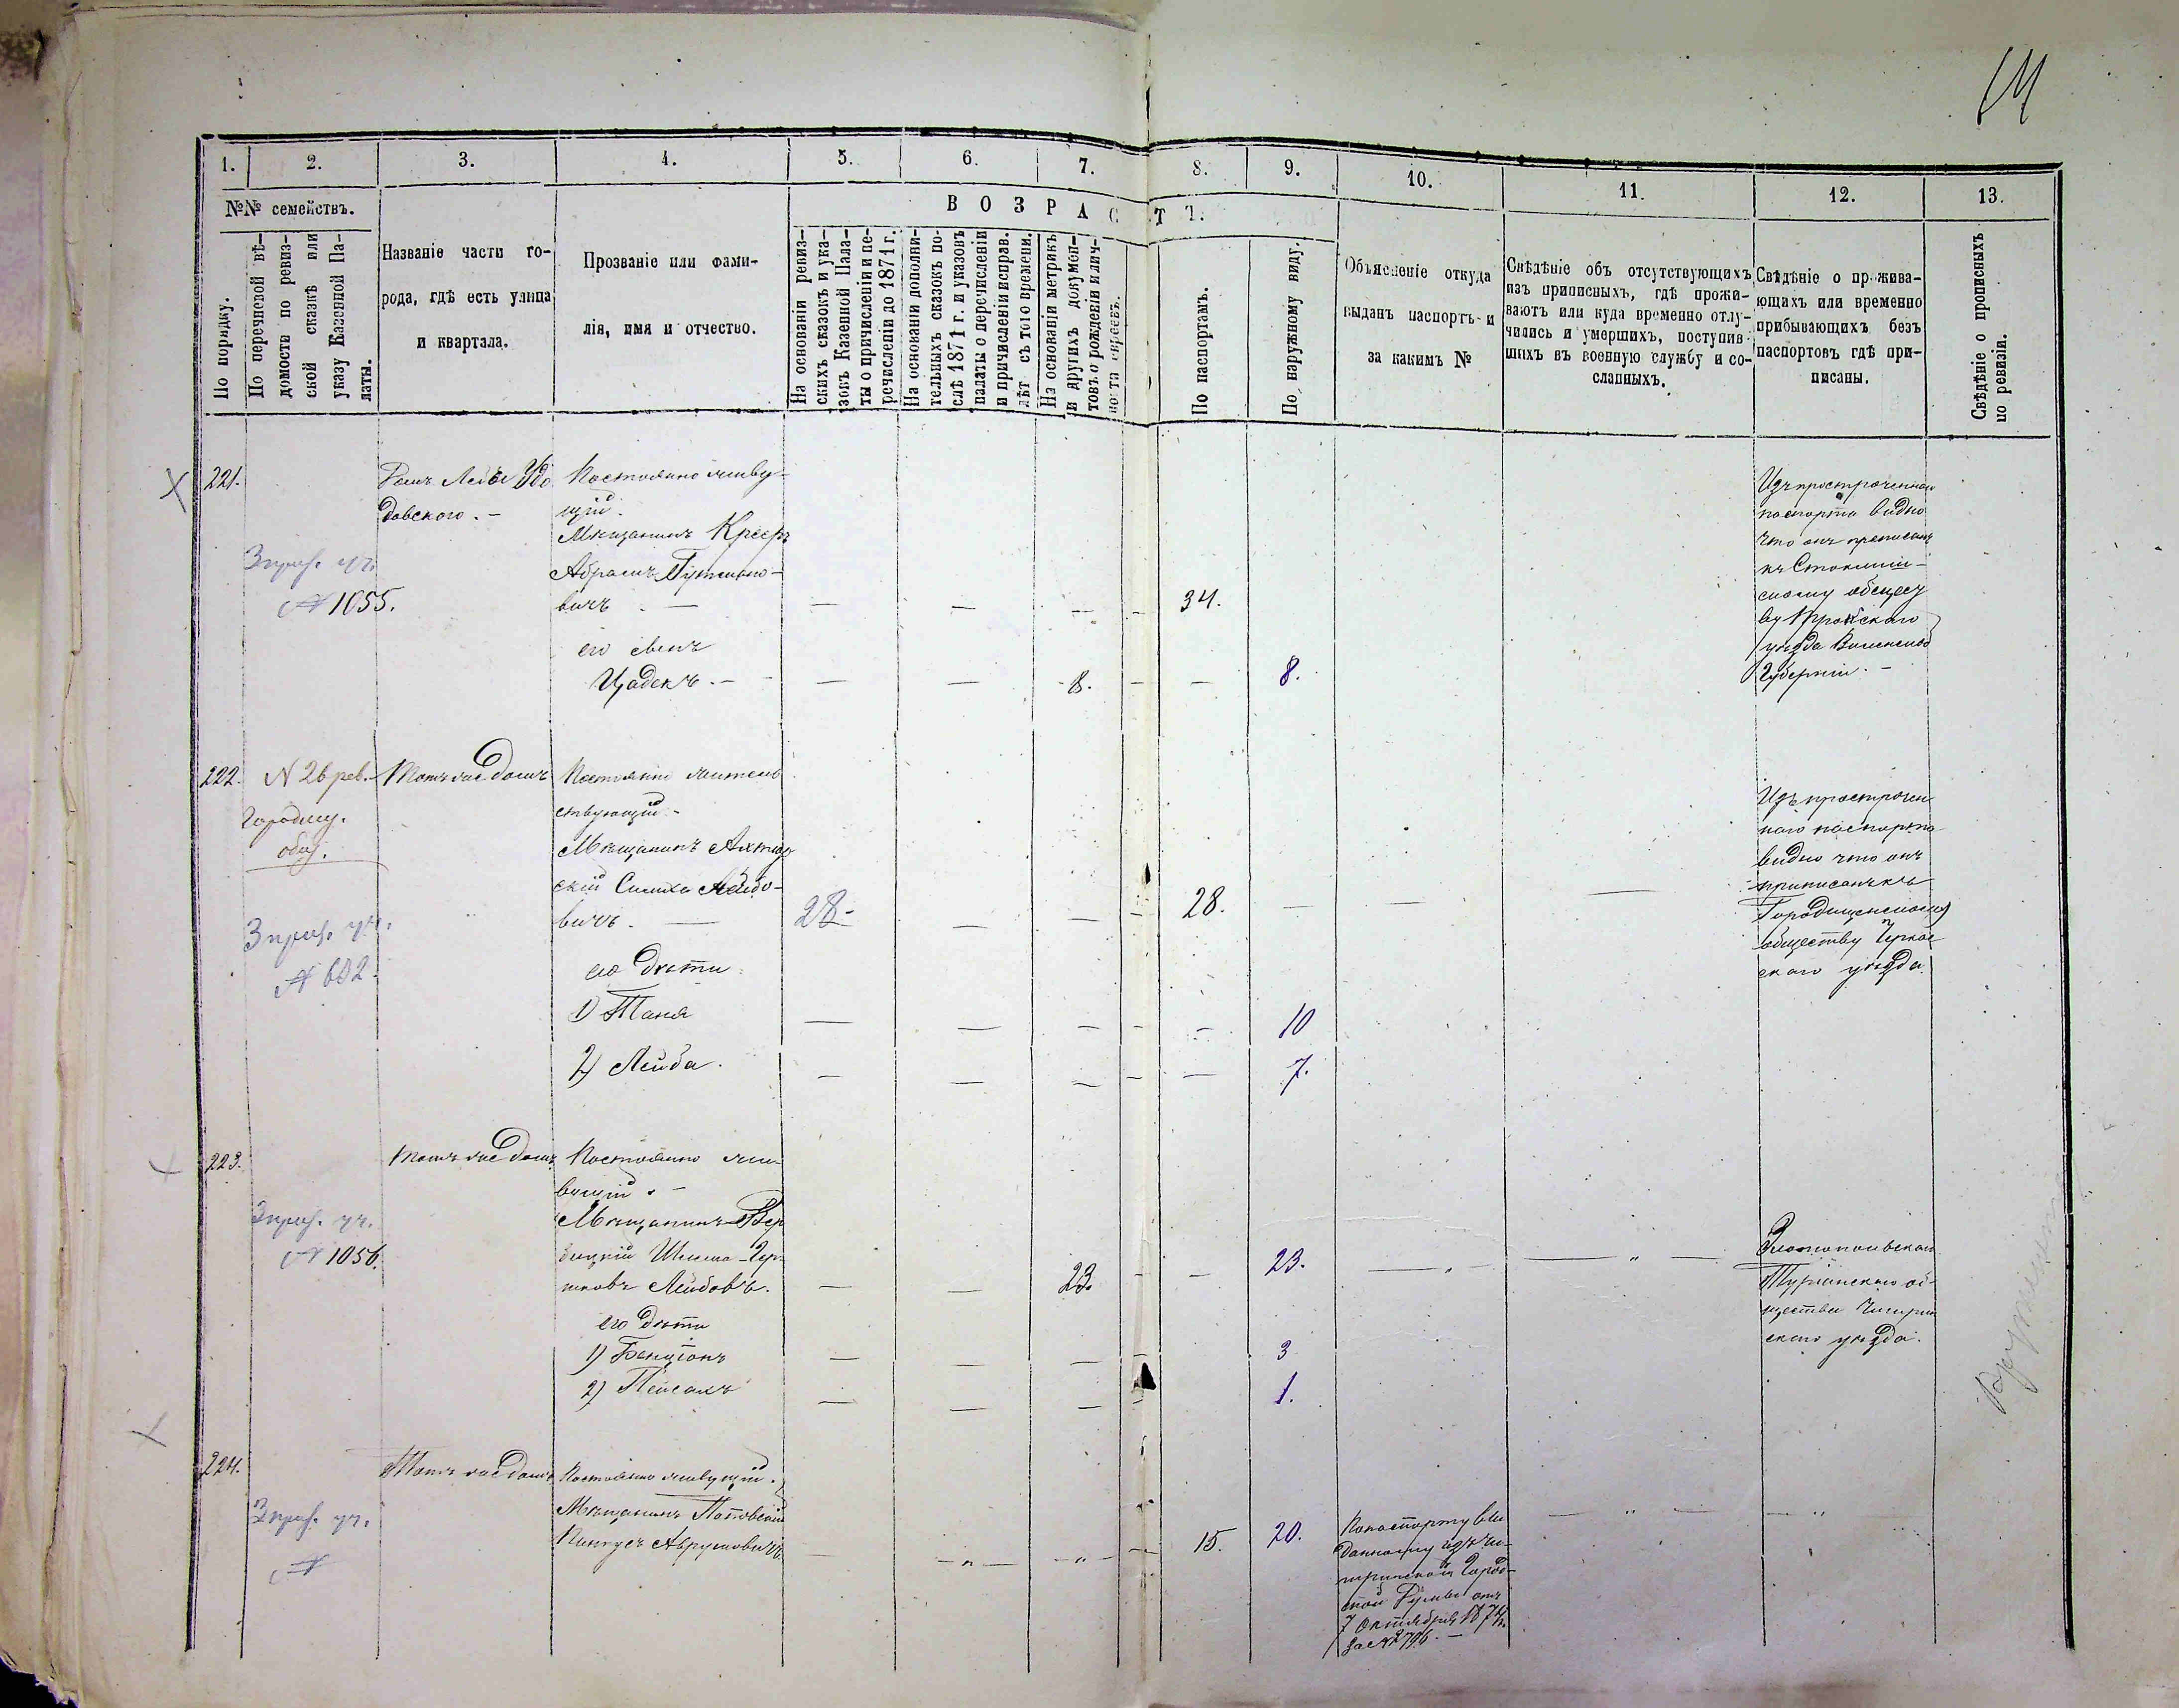 1. 2. 3. 4. 5. 6. 7. 8. 9. 10. 11. 12. 13.
№№ семействъ.
По порядку.
По перечневой вѣ-
домости по ревиз-
ской сказкѣ или
указу Казенной Па-
латы.
Названіе части го-
рода, гдѣ есть улица
и квартала.
Прозваніе или фами-
лія, имя и отчество.
ВОЗРАСТЪ.
На основаніи ревиз-
скихъ сказокъ и ука-
зовъ Казенной Пала-
ты о причисленіи и пе-
речисленіи до 1871 г.
На основаніи дополни-
тельныхъ сказокъ по-
слѣ 1871 г. и указовъ
палаты о перечисленіи
и причисленіи исправ.
лѣт съ того времени.
На основаніи метрикъ
и другихъ докумен-
товъ о рожденіи и лич-
ности евреевъ.
По паспортамъ.
По наружному виду.
Объясненіе откуда
выданъ паспортъ и
за какимъ №
Свѣдѣніе объ отсутствующихъ
изъ приписныхъ, гдѣ прожи-
ваютъ или куда временно отлу-
чились и умершихъ, поступив-
шихъ въ военную службу и со-
сланныхъ.
Свѣдѣніе о прожива-
ющихъ или временно
прибывающихъ безъ
паспортовъ гдѣ при-
писаны.
Свѣдѣніе о прописныхъ
по ревизіи.
221.
№ 1055.
Домъ Лейбы
довского. -
Постоянно живу-
щій.
Мѣщанинъ
Абрамъ
вичъ
34.
его сынъ
Цадекъ. - 8. 8.
Изъ просроченнаго
паспорта видно
что онъ приписанъ
къ
скому общест
ву Трокскаго
уѣзда Виленской
Губерніи. -
222. № 26 рев.
Городищ.
общ.
№ 602.
Тотъ же домъ
Постоянно житель
ствующій -
Мѣщанинъ Ахтыр
скій Симха Лейбо-
вичъ. 28- 28.
его дѣти
1) Таня 10
2) Лейба. 7.
Изъ просрочен
наго паспорта
видно что онъ
приписанъ къ
Городищенскому
обществу Черкас
скаго уѣзда.
223.
№ 1056.
Тотъ же домъ
Постоянно жи-
вущій. -
Мѣщанинъ Вер
бицкій Шлема-Гер-
шковъ Лейбовъ. 23. 23.
его дѣти
1) Бенціонъ 3
2) Пейсахъ 1.
Златопольскаго
Туріянскаго об-
щества Чигирин
скаго уѣзда.
224.
№
Тотъ же домъ
Постоянно живущій.
Мѣщанинъ
Пинхусъ Аврумовичъ 15. 20.
По паспорту вы
данному изъ Чи-
гиринской Город-
ской Думы отъ
7 Октября 1874 г.
за № 2796. -